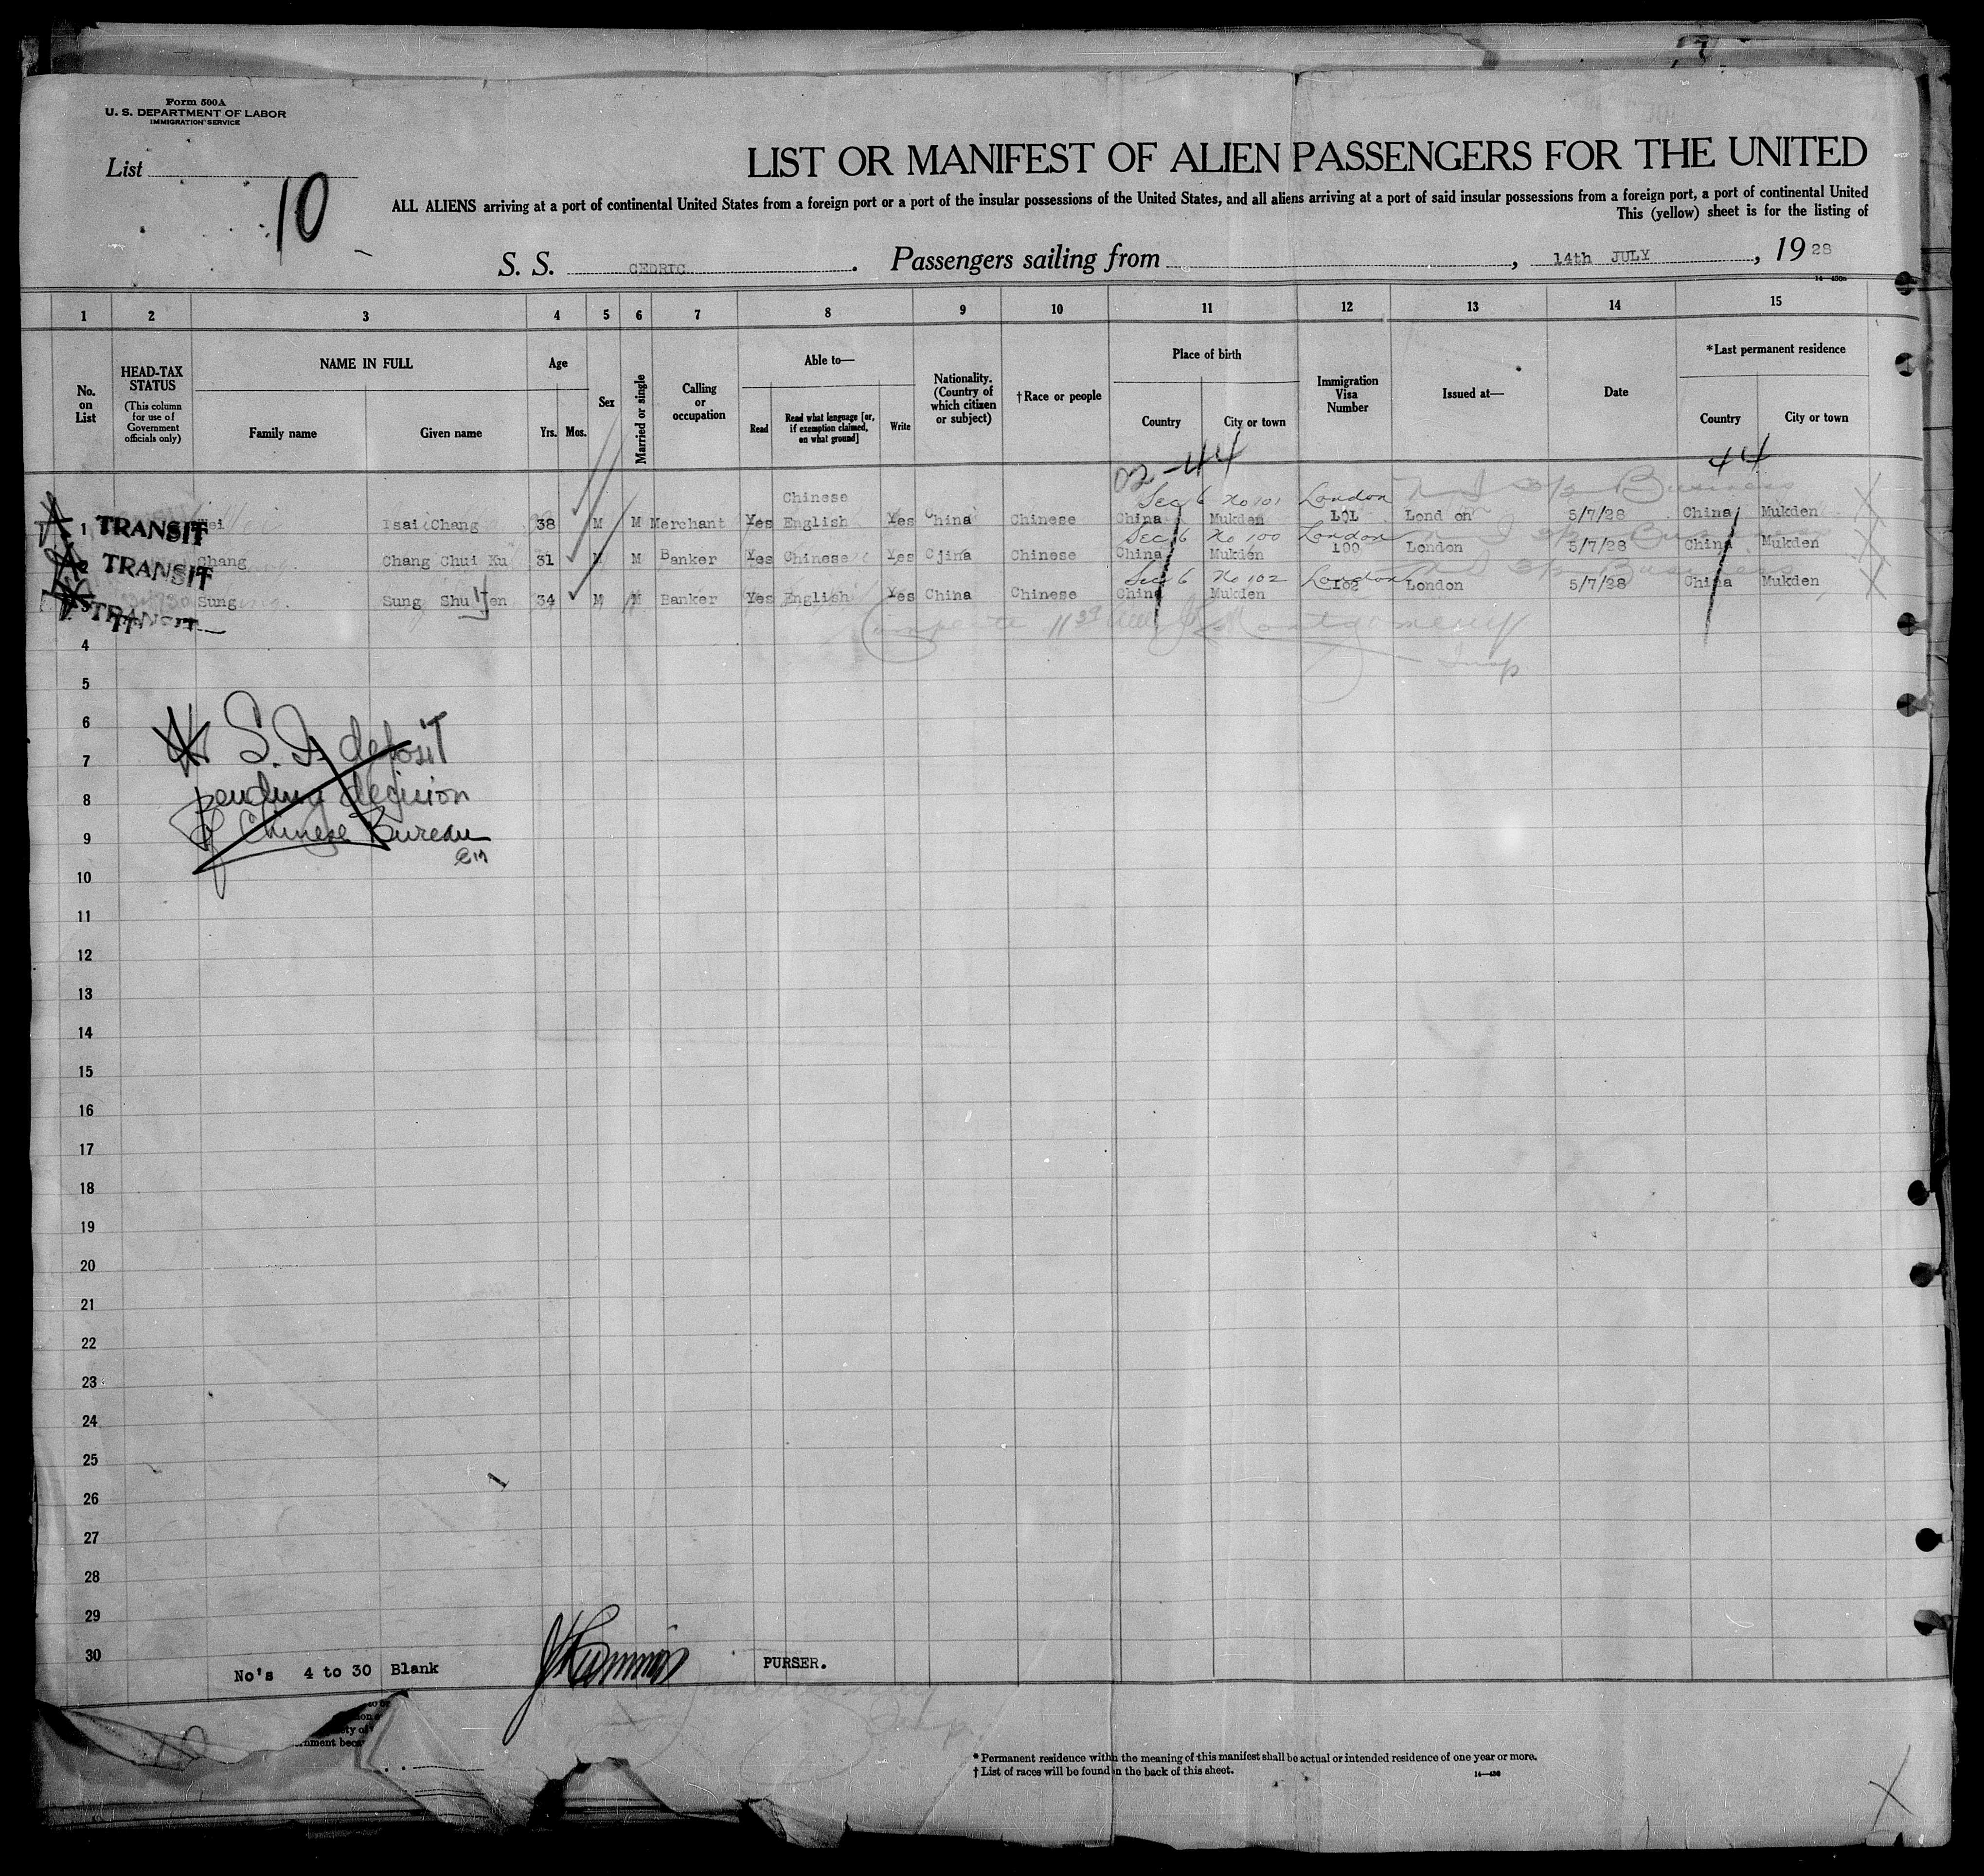 Form 500A
U. S. DEPARTMENT OF LABOR
IMMIGRATION SERVICE
List
10
LIST OR MANIFEST OF ALIEN PASSENGERS FOR THE UNITED
ALL ALIENS arriving at a port of continental United States from a foreign port or a port of the insular possessions of the United States, and all aliens arriving at a port of said insular possessions from a foreign port, a port of continental United
This (yellow) sheet is for the listing of
S. S. CEDRIC. Passengers sailing from , 14th JULY, 1928
1 2 3 4 5 6 7 8 9 10 11 12 13 14 15
No. on List
HEAD-TAX STATUS
(This column for use of Government officials only)
NAME IN FULL
Family name Given name
Age
Yrs. Mos.
Sex
Married or single
Calling or occupation
Able to—
Read
Read what language [or, if exemption claimed, on what ground]
Write
Nationality. (Country of which citizen or subject)
†Race or people
Place of birth
Country City or town
Immigration Visa Number
Issued at—
Date
*Last permanent residence
Country City or town
02-44 44
Chinese
Sec 6 No 101 London Business
1 TRANSIT Wei Tsai Chang 38 M M Merchant Yes English Yes China Chinese China Mukden 101 Lond on 5/7/28 China Mukden
Sec 6 No 100 London Business
2 TRANSIT Chang Chang Chui Ku 31 M M Banker Yes Chinese Yes Cjina Chinese China Mukden 100 London 5/7/28 China Mukden
Sec 6 No 102 London Business
3 TRANSIT Sung Sung Shu Jen 34 M M Banker Yes English Yes China Chinese China Mukden 102 London 5/7/28 China Mukden
Montgomery
Insp
4
5
6
7
8
9
10
S. I. deposit
pending decision
of Chinese Bureau
11
12
13
14
15
16
17
18
19
20
21
22
23
24
25
26
27
28
29
30
No's 4 to 30 Blank
PURSER.
Insp.
rnment beca
* Permanent residence within the meaning of this manifest shall be actual or intended residence of one year or more.
† List of races will be found on the back of this sheet.